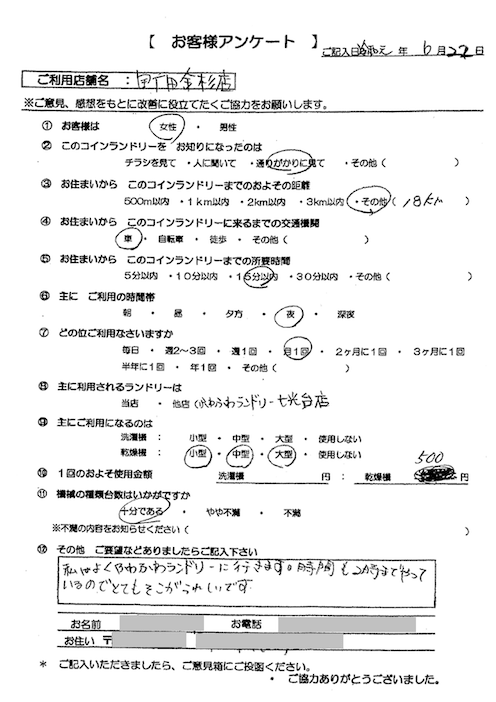 【 お客様アンケート 】
ご記入日 令和元 年 6 月 22 日
ご利用店舗名 : 野田金杉店
※ご意見、感想をもとに改善に役立てたくご協力をお願いします。
① お客様は 女性 ・ 男性
② このコインランドリーを お知りになったのは
チラシを見て ・人に聞いて ・通りがかりに見て ・その他（ ）
③ お住まいから このコインランドリーまでのおよその距離
500m以内 ・1km以内 ・2km以内 ・3km以内 ・その他（ 18km ）
④ お住まいから このコインランドリーに来るまでの交通機関
車 ・ 自転車 ・ 徒歩 ・ その他（ ）
⑤ お住まいから このコインランドリーまでの所要時間
5分以内 ・10分以内 ・15分以内 ・30分以内 ・その他（ ）
⑥ 主に ご利用の時間帯
朝 ・ 昼 ・ 夕方 ・ 夜 ・ 深夜
⑦ どの位ご利用なさいますか
毎日 ・ 週2〜3回 ・ 週1回 ・ 月1回 ・ 2ヶ月に1回 ・ 3ヶ月に1回
半年に1回 ・ 年1回 ・ その他（ ）
⑧ 主に利用されるランドリーは
当店 ・ 他店（ふわふわランドリー七光台店
⑨ 主にご利用になるのは
洗濯機 : 小型 ・ 中型 ・ 大型 ・ 使用しない
乾燥機 : 小型 ・ 中型 ・ 大型 ・ 使用しない
⑩ 1回のおよそ使用金額 洗濯機 円 : 乾燥機 500 円
⑪ 機械の種類台数はいかがですか
十分である ・ やや不満 ・ 不満
※不満の内容をお知らせください（ ）
⑫ その他 ご要望などありましたらご記入下さい
私はよくふわふわランドリーに行きます。時間も2時まで やって
いるのでとてもそこがうれしいです
お名前 お電話
お住い 〒
* ご記入いただきましたら、ご意見箱にご投函ください。
・ ご協力ありがとうございました。